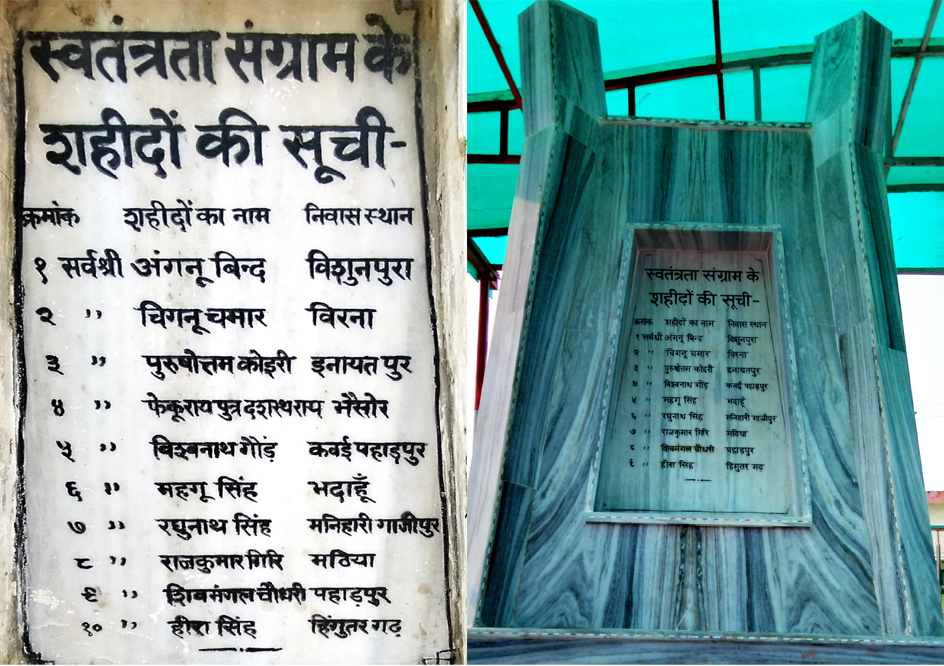 स्वतंत्रता संग्राम के
शहीदों की सूची-
क्रमांक शहीदों का नाम निवास स्थान
१ सर्वश्री अंगनू बिन्द विशुनपुरा
२ " चिगनू चमार विरना
३ " पुरुषोत्तम कोइरी इनायत पुर
४ " फेकूराय पुत्र दशरथ राय भैसोर
५ " विश्वनाथ गौंड़ कवई पहाड़पुर
६ " महगू सिंह भदाहूँ
७ " रघुनाथ सिंह मनिहारी गाजीपुर
८ " राजकुमार गिरि मठिया
९ " शिवमंगल चौधरी पहाड़पुर
१० " हीरा सिंह हिंगुतर गढ़
स्वतंत्रता संग्राम के
शहीदों की सूची-
क्रमांक शहीदों का नाम निवास स्थान
१ सर्वश्री अंगनू बिन्द विशुनपुरा
२ " चिगनू चमार विरना
३ " पुरुषोत्तम कोइरी इनायतपुर
४ " विश्वनाथ गौंड़ कवई पहाड़पुर
५ " महगू सिंह भदाहूँ
६ " रघुनाथ सिंह मनिहारी गाजीपुर
७ " राजकुमार गिरि मठिया
८ " शिवमंगल चौधरी पहाड़पुर
९ " हीरा सिंह हिंगुतर गढ़